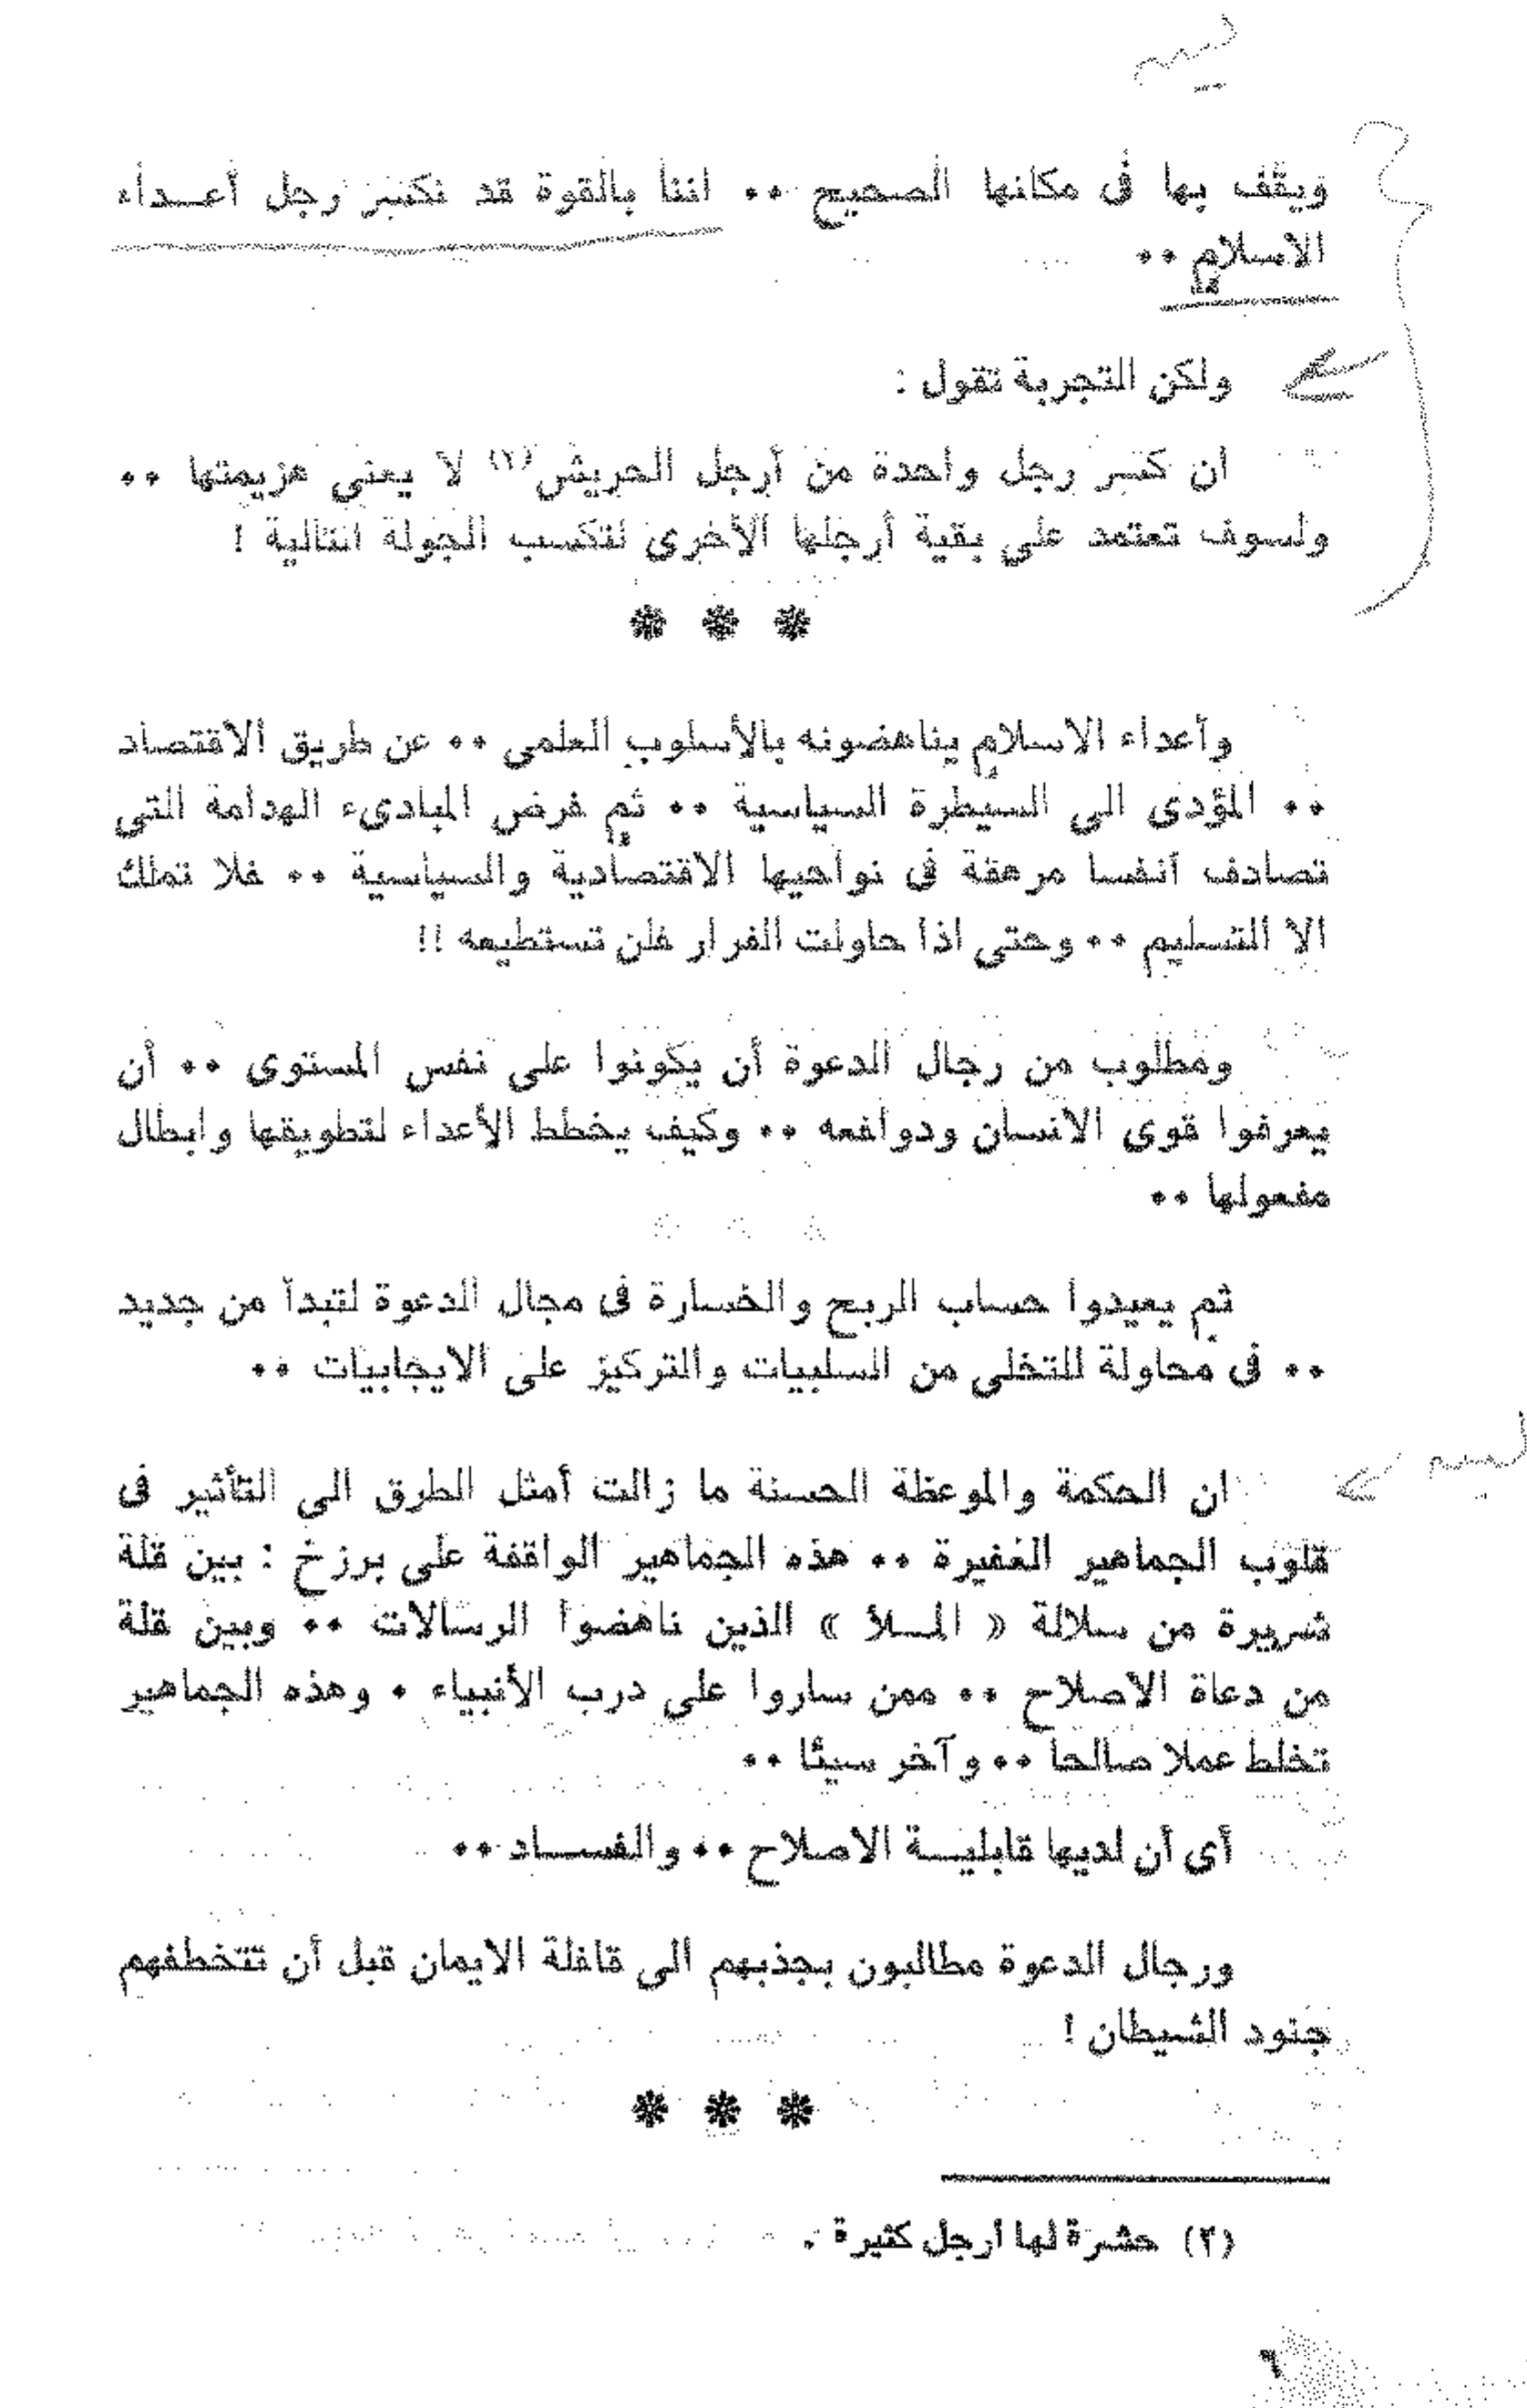 ويقف بها فى مكانها الصحيح ٠٠ اننا بالقوة قد نكسر رجل أعـــداء
الاسلام ٠٠
ولكن التجربة تقول :
ان كسر رجل واحدة من أرجل الحريش (٢) لا يعنى هزيمتها ٠٠
ولسوف تعتمد على بقية أرجلها الأخرى لتكسب الجولة التالية !
❋ ❋ ❋
وأعداء الاسلام يناهضونه بالأسلوب العلمى ٠٠ عن طريق الاقتصاد
٠٠ المؤدى الى السيطرة السياسية ٠٠ ثم فرض المبادىء الهدامة التى
تصادف أنفسا مرهقة فى نواحيها الاقتصادية والسياسية ٠٠ فلا تملك
الا التسليم ٠٠ وحتى اذا حاولت الفرار فلن تستطيعه !!
ومطلوب من رجال الدعوة أن يكونوا على نفس المستوى ٠٠ أن
يعرفوا قوى الانسان ودوافعه ٠٠ وكيف يخطط الأعداء لتطويقها وابطال
مفعولها ٠٠
ثم يعيدوا حساب الربح والخسارة فى مجال الدعوة لتبدأ من جديد
٠٠ فى محاولة للتخلى من السلبيات والتركيز على الايجابيات ٠٠
ان الحكمة والموعظة الحسنة ما زالت أمثل الطرق الى التأثير فى
قلوب الجماهير الغفيرة ٠٠ هذه الجماهير الواقفة على برزخ : بين قلة
شريرة من سلالة « المــلأ » الذين ناهضوا الرسالات ٠٠ وبين قلة
من دعاة الاصلاح ٠٠ ممن ساروا على درب الأنبياء ٠ وهذه الجماهير
تخلط عملا صالحا ٠٠ وآخر سيئا ٠٠
أى أن لديها قابليـــة الاصلاح ٠٠ والفســـاد ٠٠
ورجال الدعوة مطالبون بجذبهم الى قافلة الايمان قبل أن تتخطفهم
جنود الشيطان !
❋ ❋ ❋
(٢) حشرة لها أرجل كثيرة .
٦